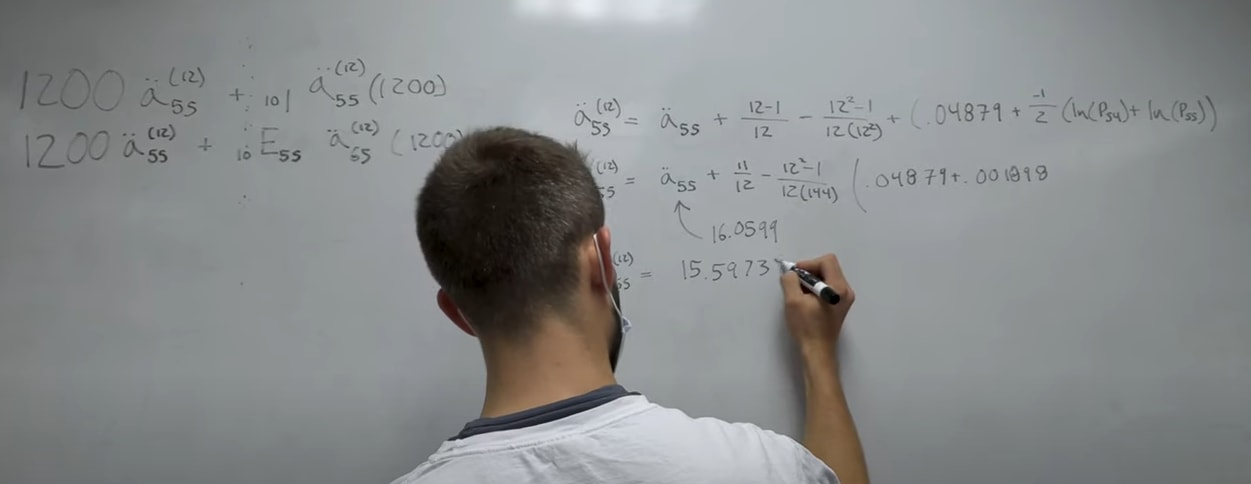 1200 ä₅₅⁽¹²⁾ + ₁₀| ä₅₅⁽¹²⁾ (1200)
1200 ä₅₅⁽¹²⁾ + ₁₀E₅₅ ä₆₅⁽¹²⁾ (1200)
ä₅₅⁽¹²⁾ = ä₅₅ + 12-1/12 - 12²-1/12(12²) + (.04879 + -1/2 (ln(P₅₄) + ln(P₅₅))
⁽¹²⁾₅ = ä₅₅ + 11/12 - 12²-1/12(144) (.04879+.001898
16.0599
⁽¹²⁾₅₅ = 15.5973